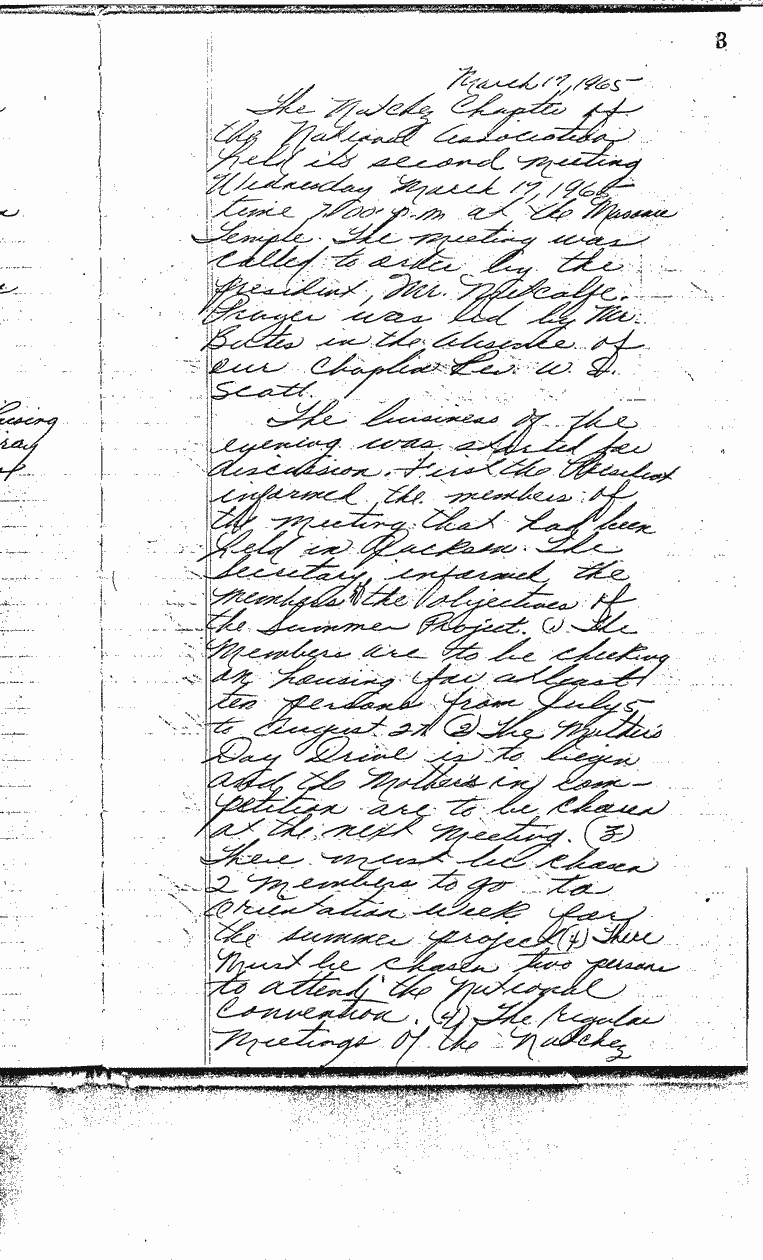 3
March 17, 1965
The Natchez Chapter of
the National Association
held its second meeting
Wednesday March 17, 1965
time 7:00 p.m at the Masonic
Temple. The meeting was
called to order by the
president, Mr. Metcalfe.
Prayer was led by Mr.
Bates in the absence of
our Chaplin Rev. W. S.
Scott.
The business of the
evening was started for
discussion. First the President
informed the members of
the meeting that had been
held in Jackson. The
Secretary informed the
members the objectives of
the Summer Project. (1) The
Members are to be checking
on housing for atleast
ten persons from July 5,
to August 27. (2) The Mother's
Day Drive is to begin
and the Mothers in com-
petition are to be chosen
at the next meeting. (3)
There must be chosen
2 members to go to
orientation week for
the summer project (4) There
Must be chosen two persons
to attend the National
Convention. (4) The regular
Meetings of the Natchez
ousing
ray